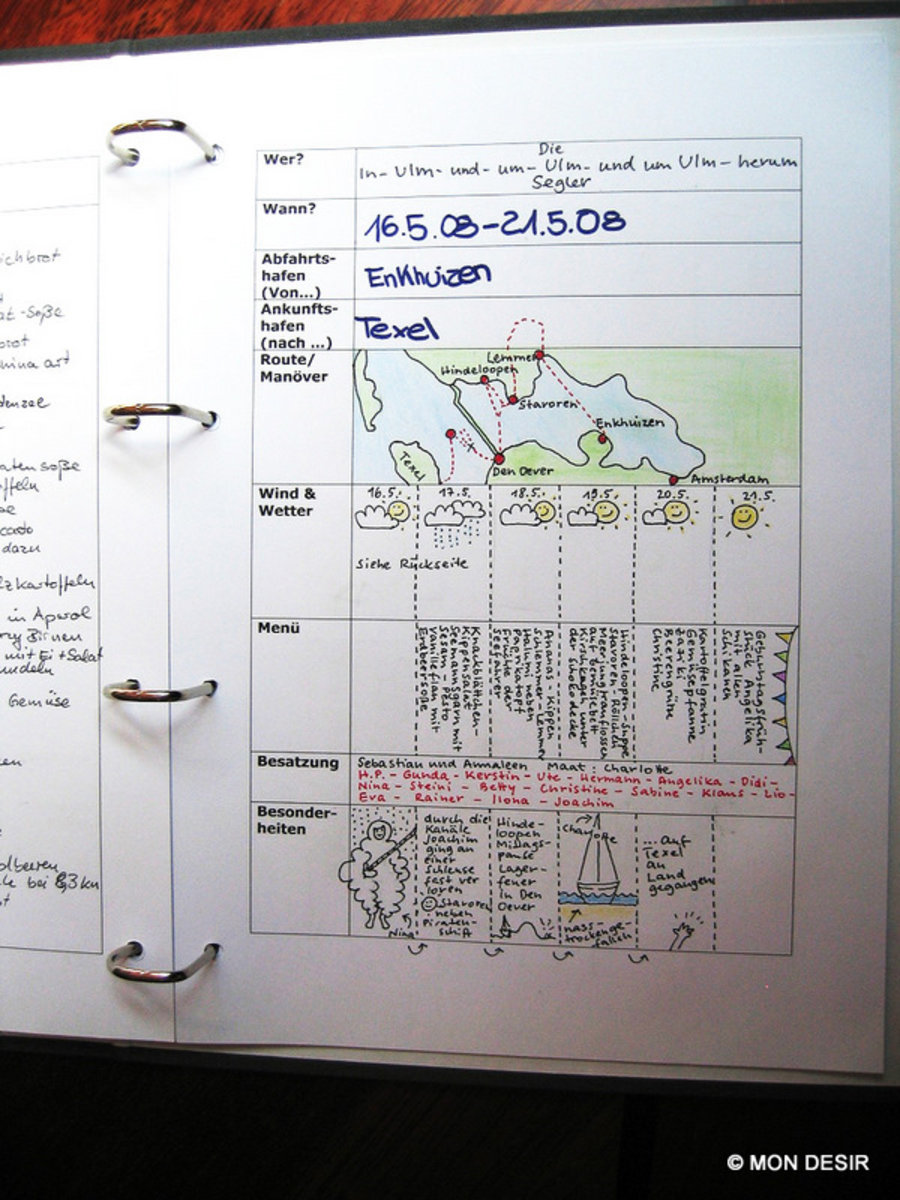 ichbrot
at-Soße
brot
china art
denzee
aten soße
ffeln
cado
dazu
lzkartoffeln
in Aperol
rry Birnen
mit Ei + Salat
nudeln
Gemüse
olbeeren
bei 8,3 km
Wer?
Die
In- Ulm- und- um- Ulm- und um Ulm- herum
Segler
Wann?
16.5.08-21.5.08
Abfahrts-
hafen
(Von...)
Enkhuizen
Ankunfts-
hafen
(nach ...)
Texel
Route/
Manöver
Lemmer
Hindeloopen
Stavoren
Enkhuizen
Texel
Den Oever
Amsterdam
Wind &
Wetter
16.5. 17.5. 18.5. 19.5. 20.5. 21.5.
siehe Rückseite
Menü
Knackblättchen-
Kippensalat
Seemannsgarn mit
Sesam - Pesto
Vanillefilm mit
Erdbeersoße
Ananas-Kippen
Schlemmer-Lemmer
Halumi neben
Paprikatopf
Früchte der
Seefahrer
Hindeloopen-Suppe
Stavoren Röllchen
Meerjungfrauflossen
auf Gemüsebett
Kirschkegeln unter
der Schokodecke
Kartoffelgratin
Gemüsepfanne
Zaziki
Beerengrütze
Christine
Geburtstagsfrüh-
stück Angelika
mit allen
Schikanen
Besatzung
Sebastian und Annaleen Maat: Charlotte
H.P. - Gunda - Kerstin - Ute - Hermann - Angelika - Didi -
Nina - Steini - Betty - Christine - Sabine - Klaus - Lio -
Eva - Rainer - Ilona - Joachim
Besonder-
heiten
Nina
durch die
Kanäle
Joachim
ging an
einer
Schleuse
fast ver
loren
Stavoren
neben
Piraten-
schiff
Hinde-
loopen
Mittags-
pause
Lager-
feuer
in Den
Oever
Charlotte
nass
trockenge-
fallen
...auf
Texel
an
Land
gegangen
© MON DESIR